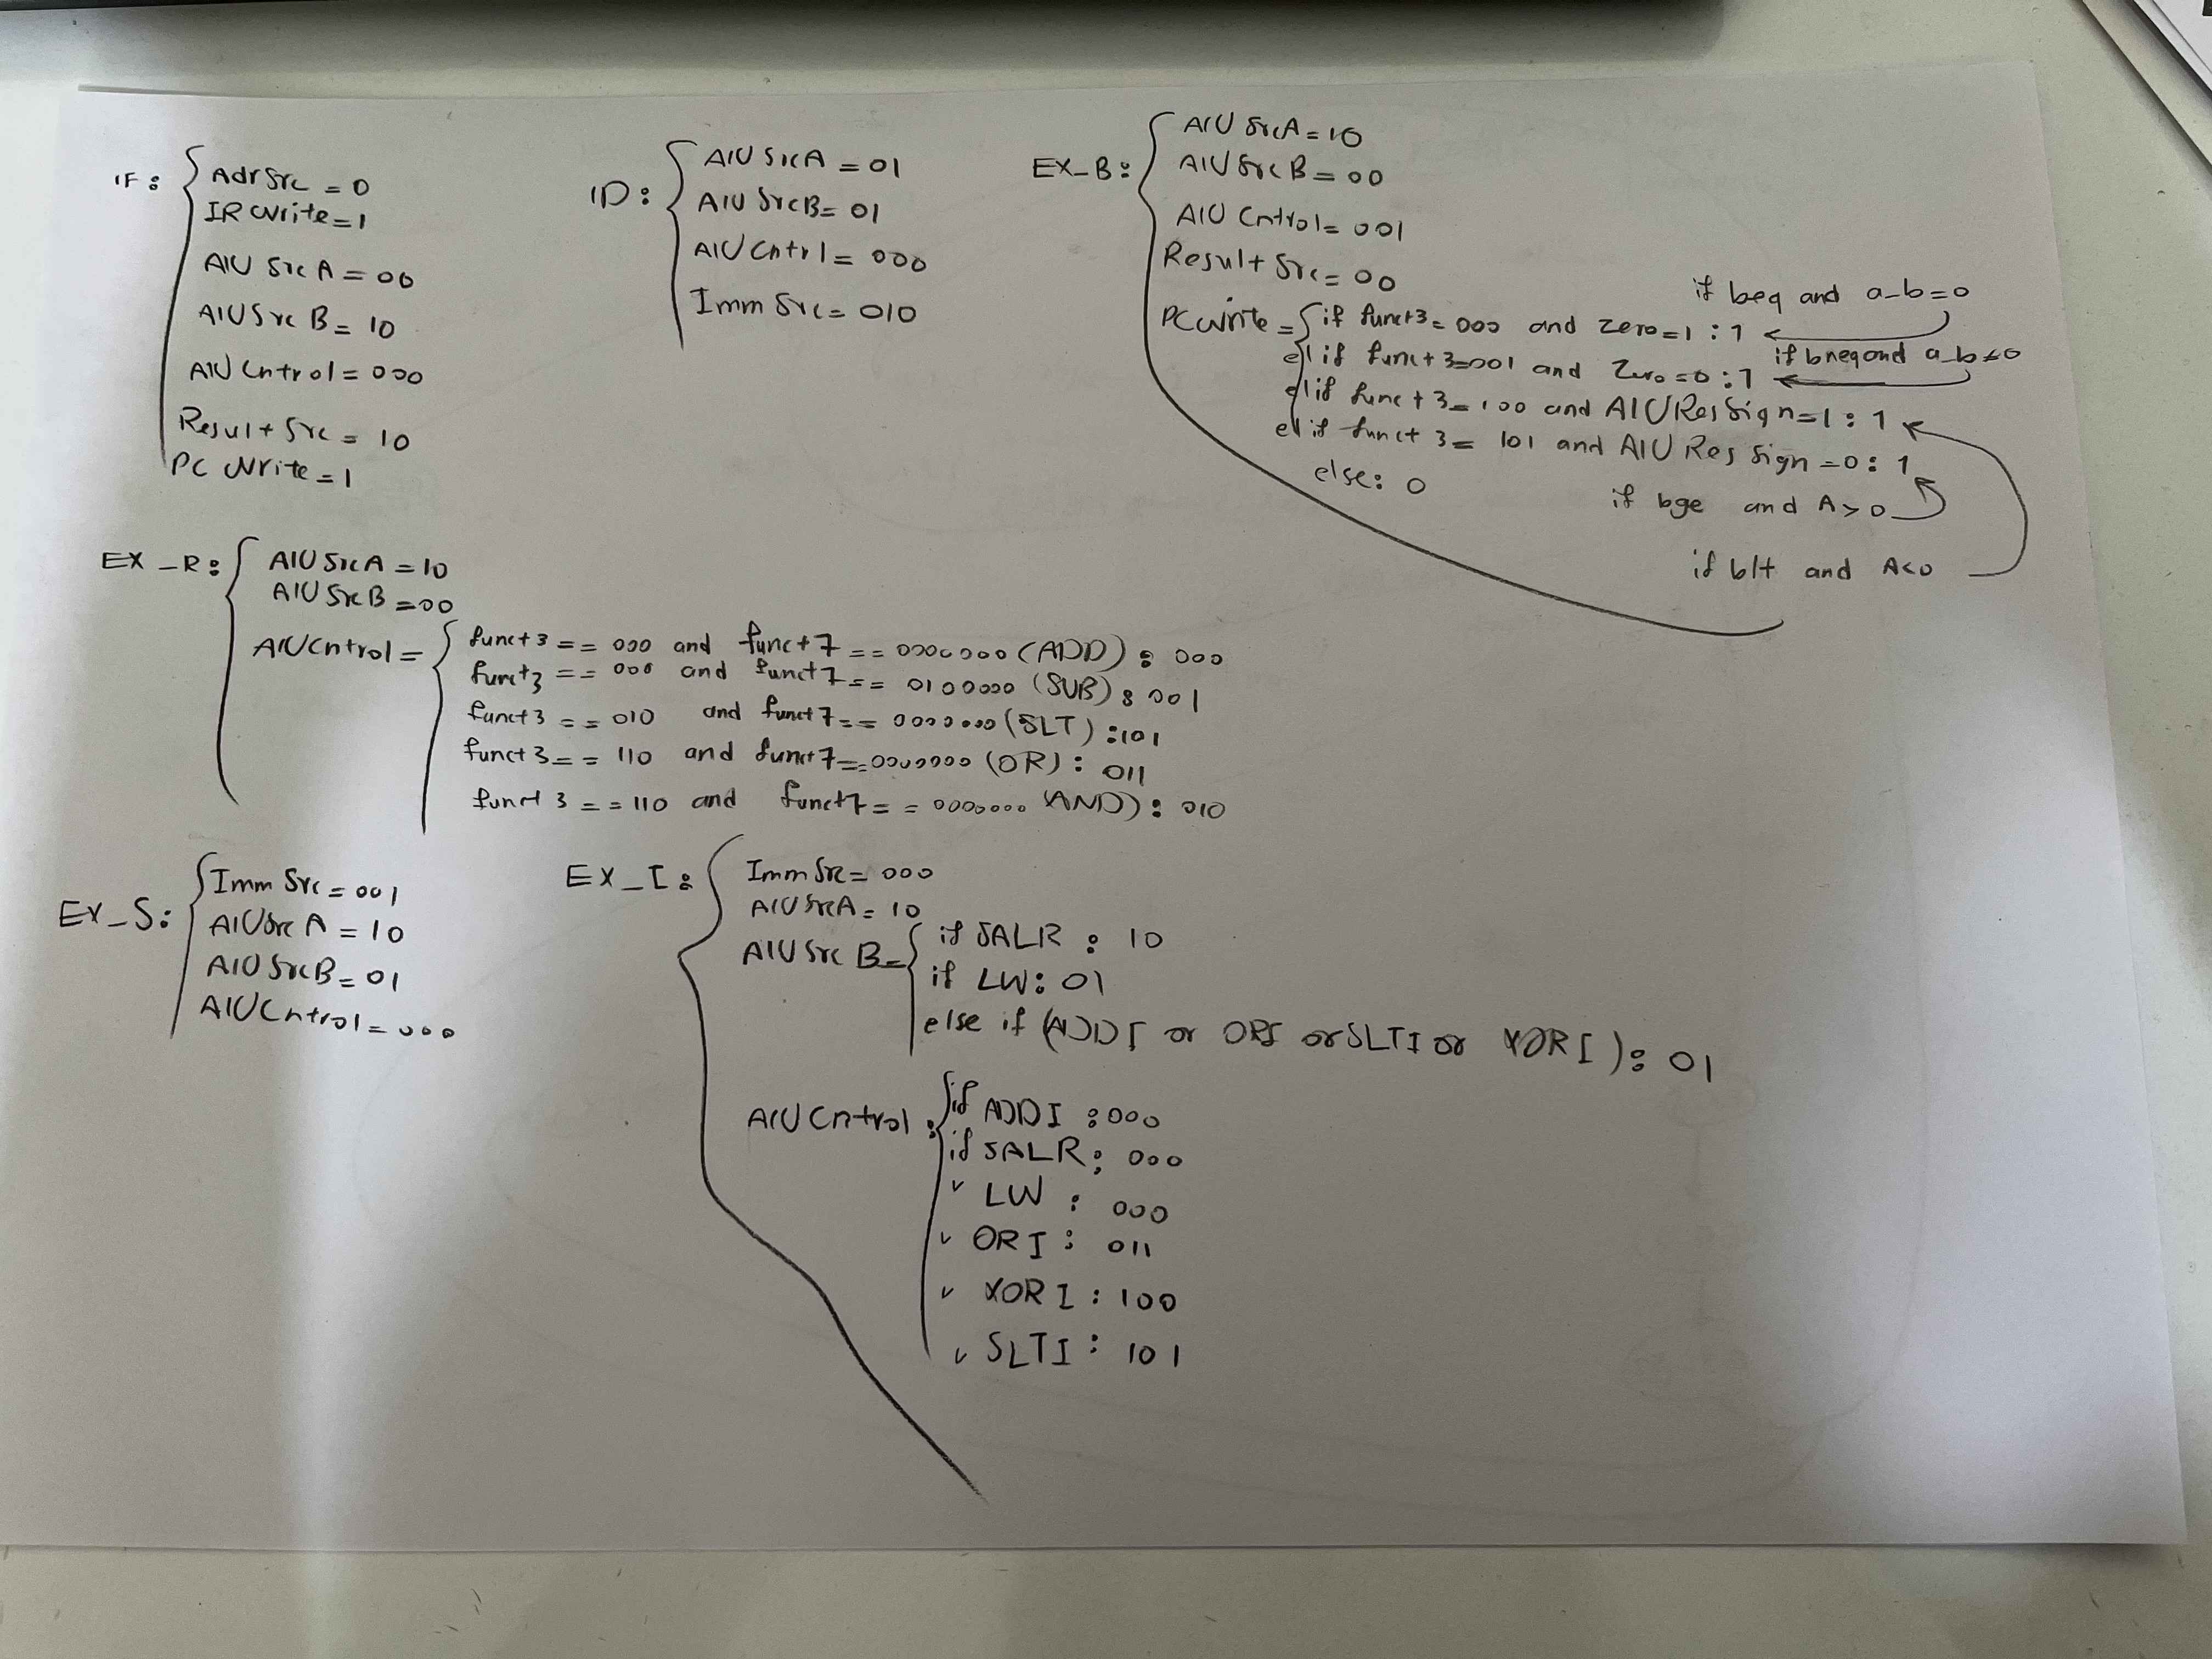 IF:
AdrSrc = 0
IRWrite = 1
AlUSrcA = 00
AlUSrcB = 10
AlUCntrol = 000
ResultSrc = 10
PCWrite = 1
ID:
AlUSrcA = 01
AlUSrcB = 01
AlUCntrl = 000
ImmSrc = 010
EX_B:
AlUSrcA = 10
AlUSrcB = 00
AlUCntrol = 001
ResultSrc = 00
if beq and a_b=0
PCWrite = if funct3 = 000 and Zero=1 : 1
if bneq and a_b≠0
el if funct3=001 and Zero=0 : 1
elif funct3=100 and AlUResSign=1 : 1
el if funct3= 101 and AlUResSign=0 : 1
else: 0
if bge and A>0
if blt and A<0
EX_R:
AlUSrcA = 10
AlUSrcB = 00
AlUCntrol =
funct3 == 000 and funct7 == 0000000 (ADD) : 000
funct3 == 000 and funct7 == 0100000 (SUB) : 001
funct3 == 010 and funct7 == 0000000 (SLT) : 101
funct3 == 110 and funct7 == 0000000 (OR) : 011
funct3 == 110 and funct7 == 0000000 (AND) : 010
EX_S:
ImmSrc = 001
AlUSrcA = 10
AlUSrcB = 01
AlUCntrol = 000
EX_I:
ImmSrc = 000
AlUSrcA = 10
AlUSrcB =
if JALR : 10
if LW: 01
else if (ADDI or ORI or SLTI or XORI) : 01
AlUCntrol :
if ADDI : 000
if JALR : 000
" LW : 000
" ORI : 011
" XORI : 100
" SLTI : 101